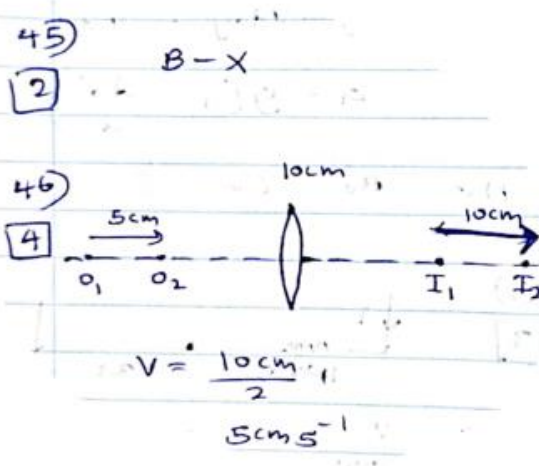 45)
B - X
2
46)
10cm
5cm
10cm
4
O₁ O₂ I₁ I₂
V = 10cm / 2
5cm s⁻¹